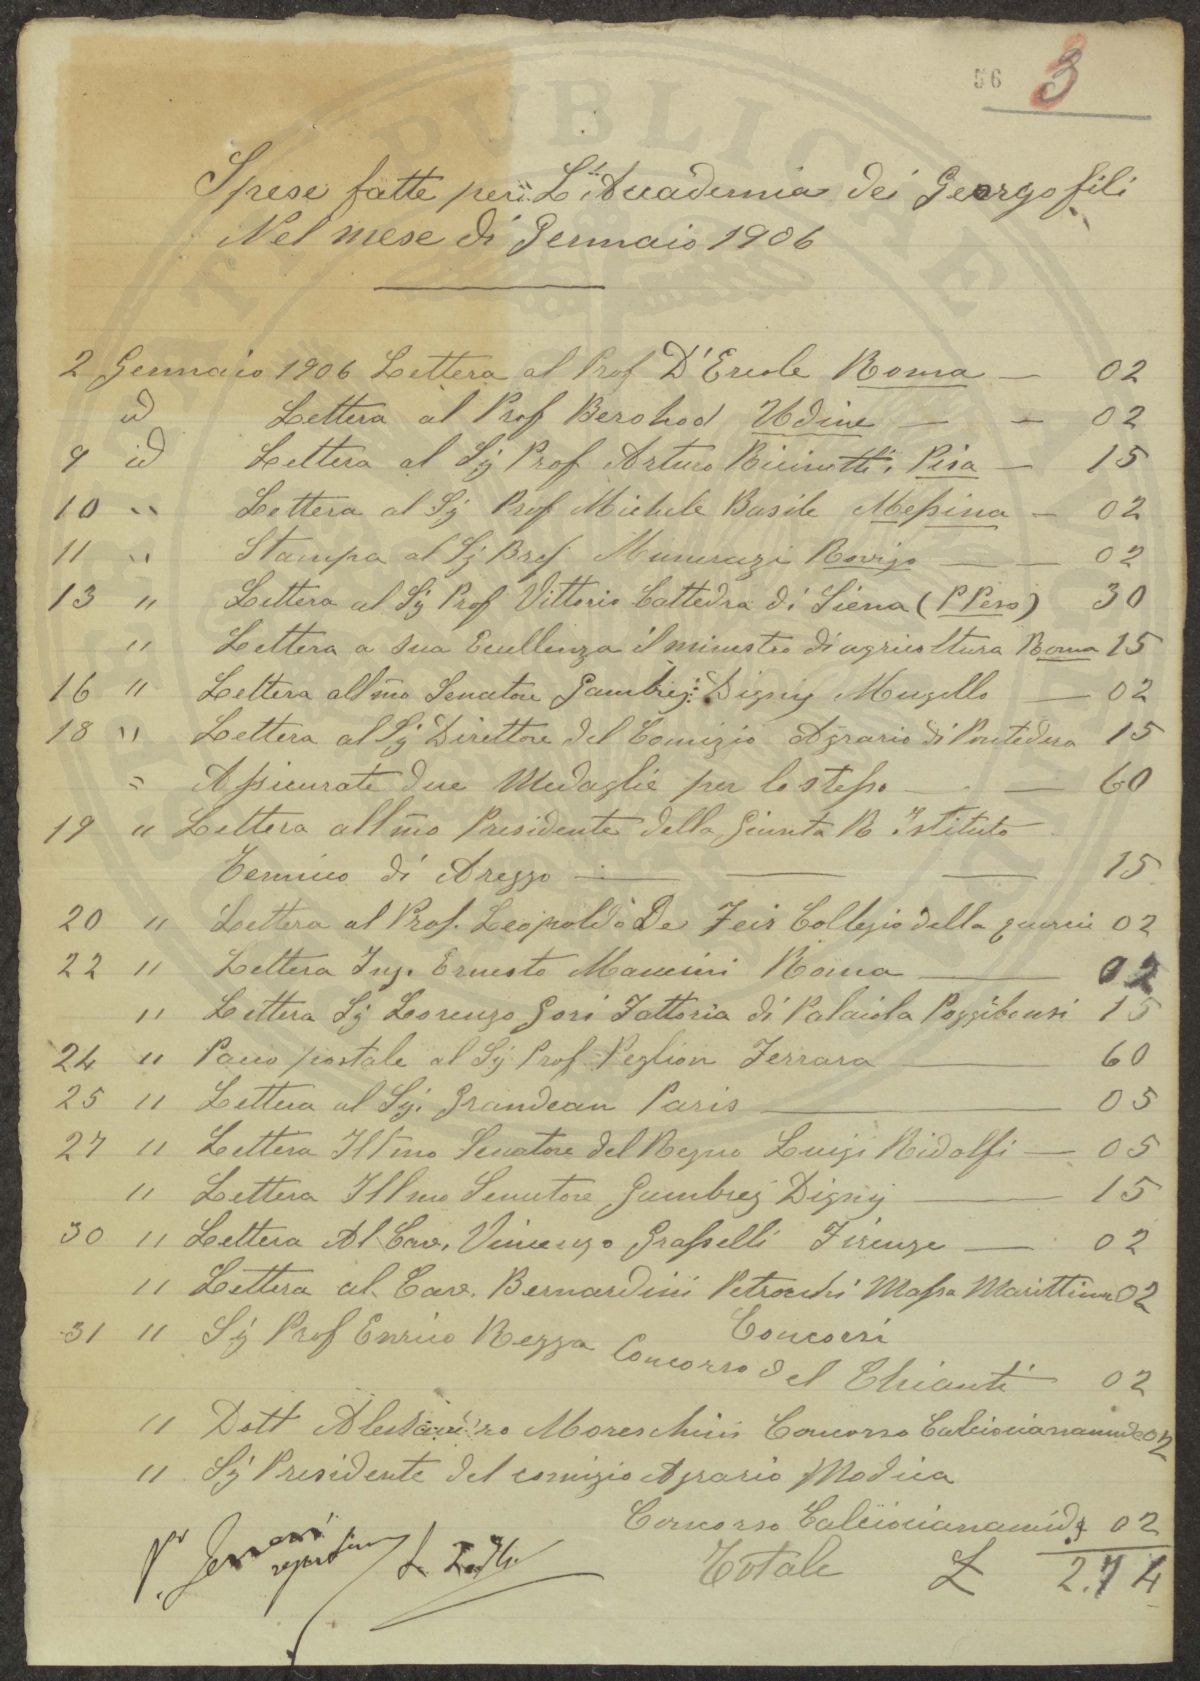 56 3
Spese fatte per L'Accademia dei Georgofili
Nel mese di Gennaio 1906
2 Gennaio 1906 Lettera al Prof D'Ercole Roma — 02
id Lettera al Prof Berohod Udine — - 02
9 id Lettera al Sig Prof Arturo Pisa — 15
10 " Lettera al Sig Prof Michele Basile Messina - 02
11 " Stampa al Sig Prof Munerazi Rovigo — — 02
13 " Lettera al Sig Prof Vittorio Cattedra di Siena (P Peso) 30
" Lettera a sua Ecellenza il ministro di agricoltura Roma 15
16 " Lettera all Senatore Digny Mugello — 02
18 " Lettera al Sig Direttore del Comizio Agrario di Pontedera 15
= Assicurate due Medaglie per lo stesso — — 60
19 " Lettera Presidente della Giunta R Istituto
Tecnico di Arezzo — — — 15
20 " Lettera al Prof. Leopoldo De Feis Collegio della 02
22 " Lettera Ing. Ernesto Mancini Roma — 02
" Lettera Sig Lorenzo Gori Fattoria di Palaiola Poggibonsi 15
24 " Pacco postale al Sig Prof Peglion Ferrara — 60
25 " Lettera al Sig. Grandean Paris — 05
27 " Lettera Illmo Senatore del Regno Luigi Ridolfi — 05
" Lettera Illmo Senatore Digny — 15
30 " Lettera Al Cav. Vincenzo Grasselli Firenze — 02
" Lettera al Cav. Bernardini Petrocchi Massa Marittima 02
31 " Sig Prof Enrico Rezza Concorsi
Concorso del Chianti 02
" Dott Alessandro Moreschini Concorso Calciocianamide 02
" Sig Presidente del comizio Agrario Modica
Concorso Calciocianamide 02
Totale £ 2.74